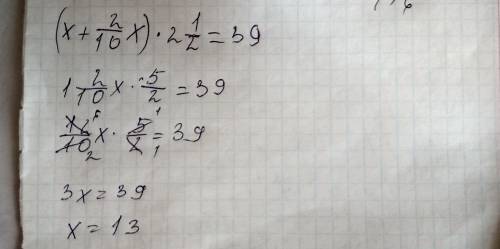 (x + 2/10 x) · 2 1/2 = 39
1 2/10 x · 5/2 = 39
12/10 x · 5/2 = 39
3x = 39
x = 13